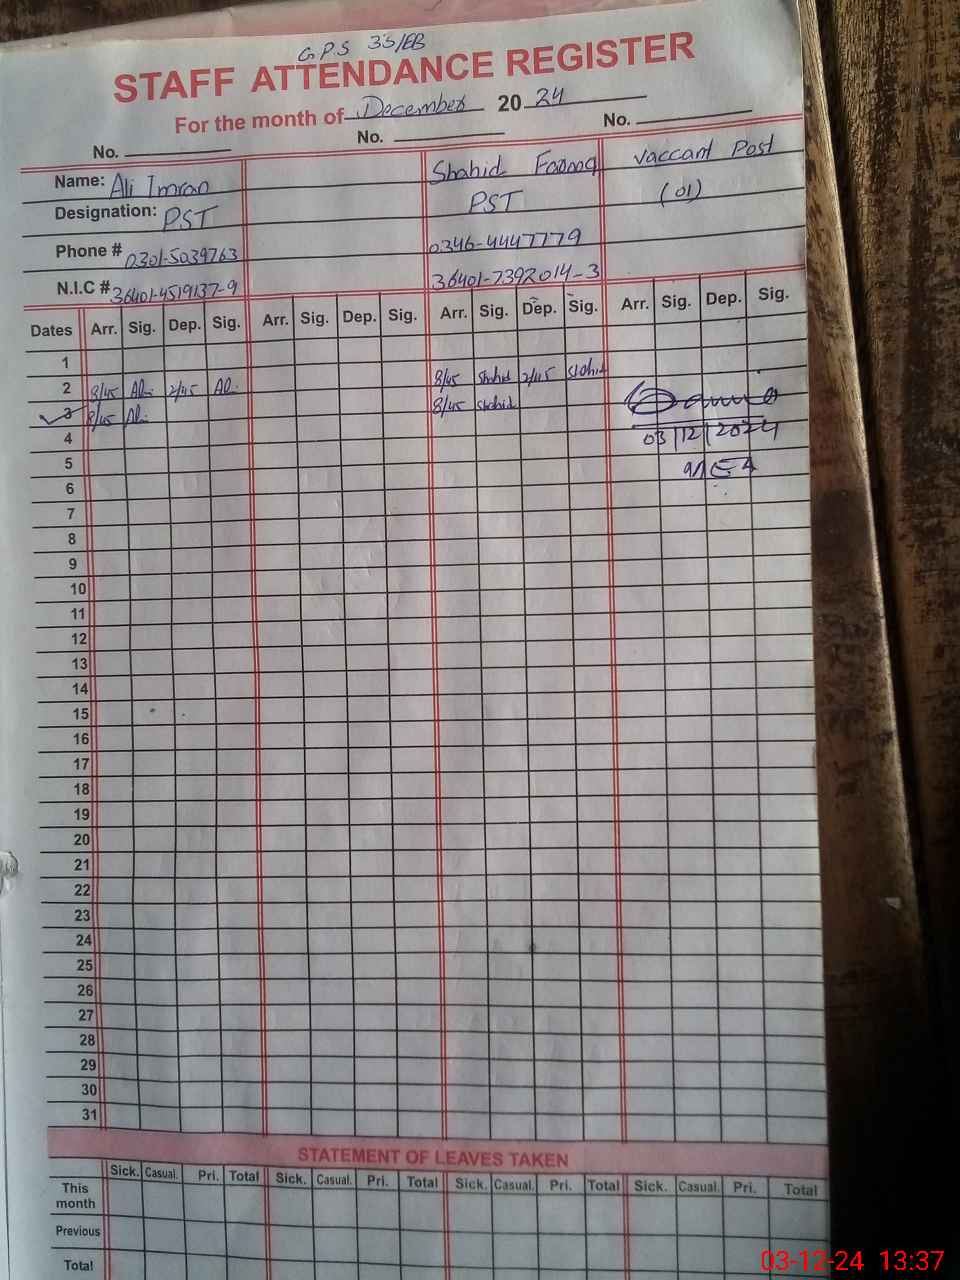 G.P.S 35/EB
STAFF ATTENDANCE REGISTER
For the month of December 2024
No. No. No.
Name: Ali Imran Shahid Farooq Vaccant Post
Designation: PST PST (01)
Phone # 0301-5039763 0346-4447779
N.I.C # 36401-4519137-9 36401-7392014-3
Dates Arr. Sig. Dep. Sig. Arr. Sig. Dep. Sig. Arr. Sig. Dep. Sig. Arr. Sig. Dep. Sig.
1
2 8/45 Ali 2/45 Ali 8/45 Shahid 2/45 Shahid
3 8/45 Ali 8/45 Shahid
4 03/12/2024
5
6
7
8
9
10
11
12
13
14
15
16
17
18
19
20
21
22
23
24
25
26
27
28
29
30
31
STATEMENT OF LEAVES TAKEN
Sick. Casual. Pri. Total Sick. Casual. Pri. Total Sick. Casual. Pri. Total Sick. Casual. Pri. Total
This month
Previous
Total
03-12-24 13:37